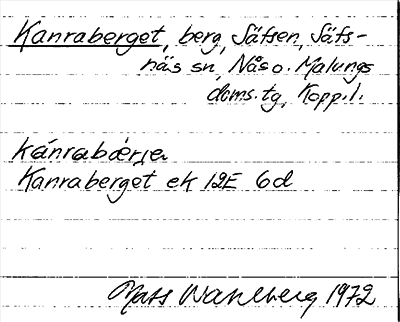 Kanraberget, berg, Säfsen, Säfs-
näs sn, Nås o. Malungs
doms. tg, Kopp. l.
kánrabǽrjɛ
Kanraberget ek 12E 6d
Mats Wahlberg 1972